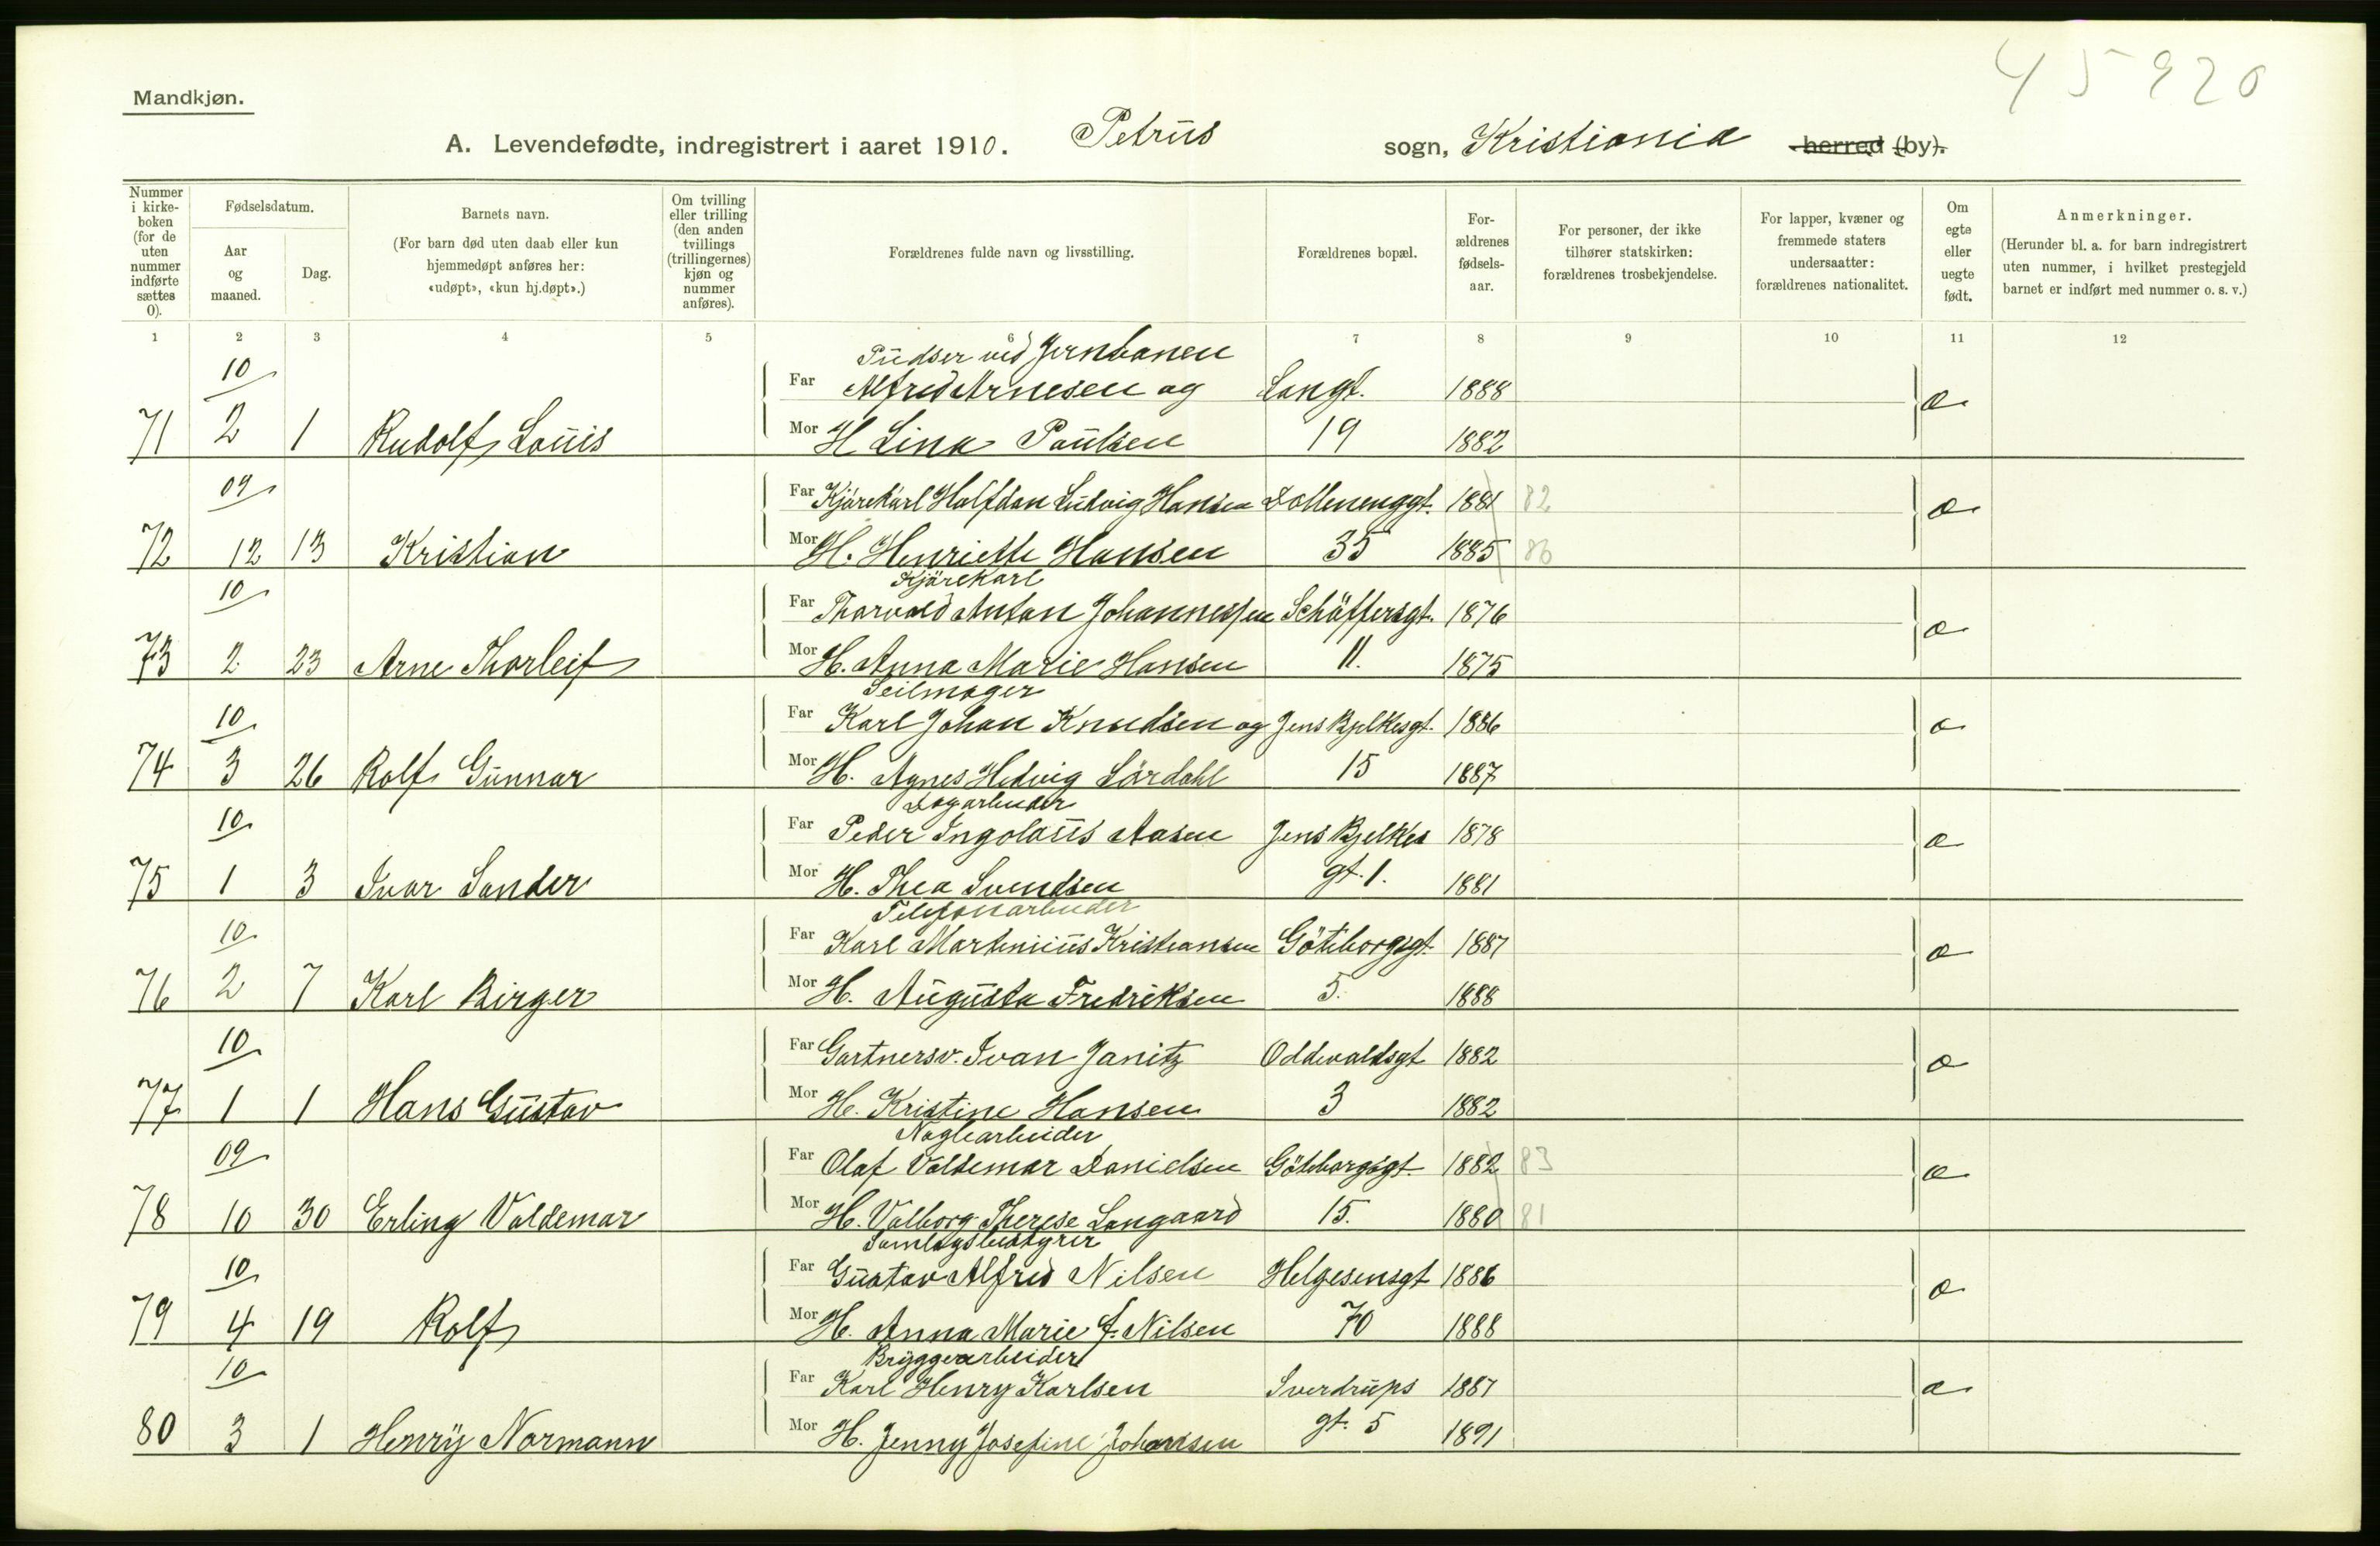 45920
Mandkjøn.
A. Levendefødte, indregistrert i aaret 1910. Petrus sogn, Kristiania herred (by).
Nummer i kirke-boken (for de uten nummer indførte sættes 0).
Fødselsdatum.
Aar og maaned.
Dag.
Barnets navn.
(For barn død uten daab eller kun hjemmedøpt anføres her: «udøpt», «kun hj.døpt».)
Om tvilling eller trilling (den anden tvillings (trillingernes) kjøn og nummer anføres).
Forældrenes fulde navn og livsstilling.
Forældrenes bopæl.
For-ældrenes fødsels-aar.
For personer, der ikke tilhører statskirken: forældrenes trosbekjendelse.
For lapper, kvæner og fremmede staters undersaatter: forældrenes nationalitet.
Om egte eller uegte født.
Anmerkninger.
(Herunder bl. a. for barn indregistrert uten nummer, i hvilket prestegjeld barnet er indført med nummer o. s. v.)
1 2 3 4 5 6 7 8 9 10 11 12
Pudser ved Jernbanen
10 Far Alfred Arnesen og Langt. 1888 æ
71 2 1 Rudolf Louis Mor H Lina Paulsen 19 1882
09 Far Kjørekarl Halfdan Ludvig Hansen Dællenenggt. 1881 82 æ
72 12 13 Kristian Mor H. Henriette Hansen 35 1885 86
Kjørekarl
10 Far Thorvald Anton Johannessen Schäffersgt. 1876 æ
73 2 23 Arne Thorleif Mor H. Anna Marie Hansen 11. 1875
Seilmager
10 Far Karl Johan Knudsen og Jens Bjelkesgt. 1886 æ
74 3 26 Rolf Gunnar Mor H. Agnes Hedvig Lördahl 15 1887
Dagarbeider
10 Far Peder Ingolaus Aasen Jens Bjelkes 1878 æ
75 1 3 Ivar Sander Mor H. Thea Svendsen gt. 1. 1881
Telefonarbeider
10 Far Karl Martinius Kristiansen Göteborggt. 1887 æ
76 2 7 Karl Birger Mor H. Augusta Fredriksen 5. 1888
10 Far Gartnersv. Ivan Janitz Oddevaldsgt 1882 æ
77 1 1 Hans Gustav Mor H. Kristine Hansen 3 1882
Naglearbeider
09 Far Olaf Valdemar Danielsen Göteborgsgt. 1882 83 æ
78 10 30 Erling Valdemar Mor H. Valborg Therese Langaard 15. 1880 81
Samlagsbestyrer
10 Far Gustav Alfred Nilsen Helgesensgt 1886 æ
79 4 19 Rolf Mor H. Anna Marie f. Nilsen 70 1888
Bryggearbeider
10 Far Karl Henry Karlsen Sverdrups 1887 æ
80 3 1 Henry Normann Mor H. Jenny Josefine Johansen gt. 5 1891